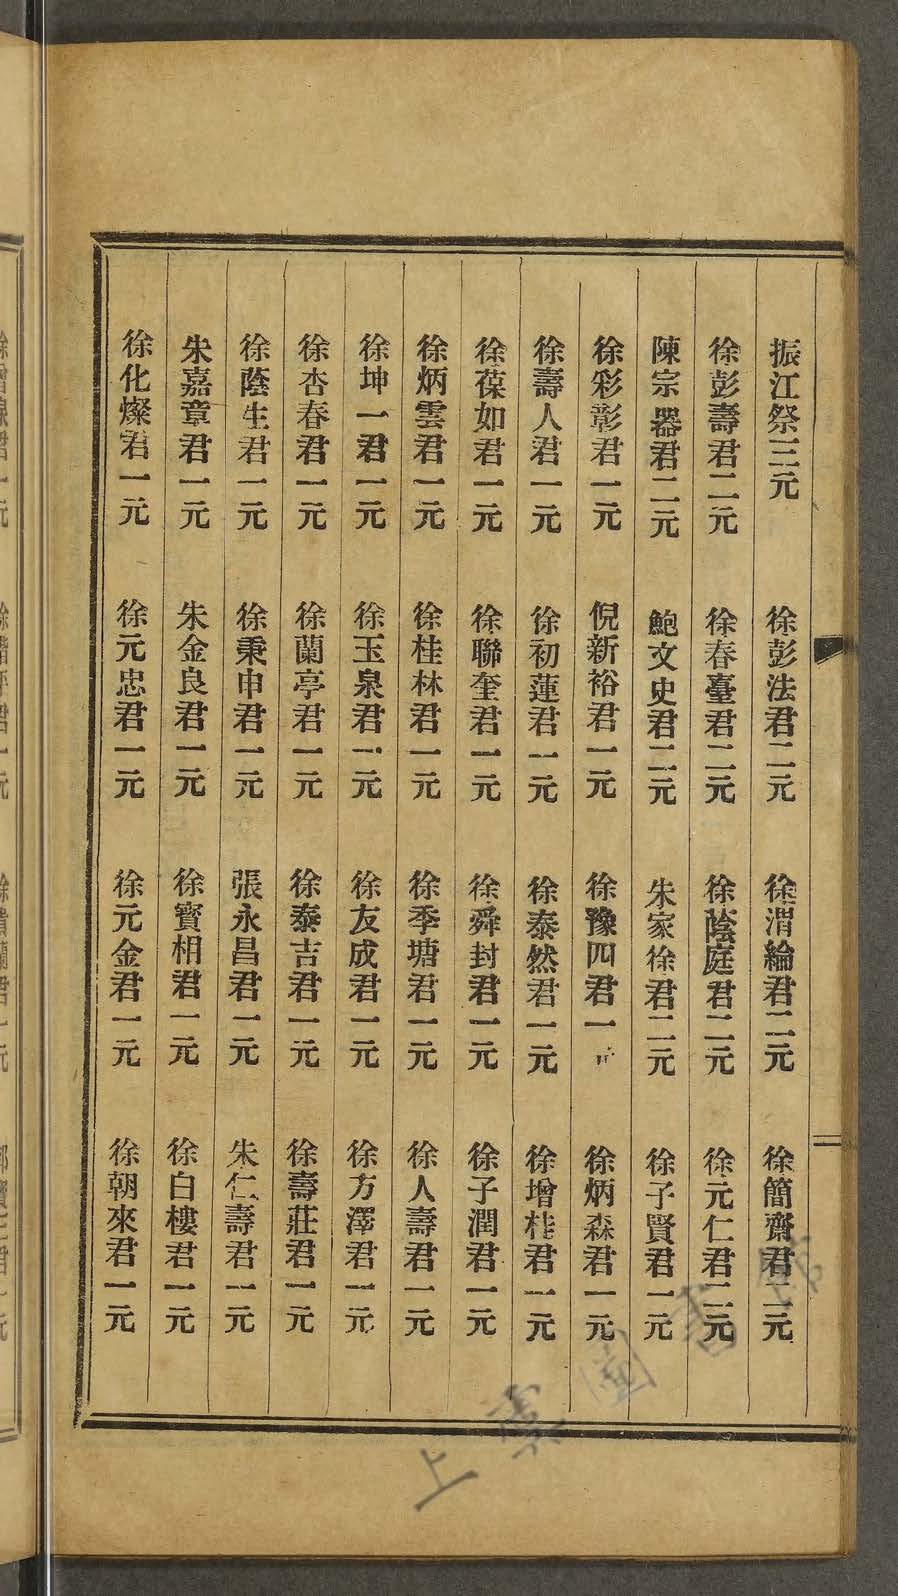 振江祭三元　徐彭法君二元　徐渭綸君二元　徐簡齋君二元
徐彭壽君二元　徐春臺君二元　徐蔭庭君二元　徐元仁君二元
陳宗器君二元　鮑文史君二元　朱家徐君二元　徐子賢君一元
徐彩彰君一元　倪新裕君一元　徐豫四君一元　徐炳森君一元
徐壽人君一元　徐初蓮君一元　徐泰然君一元　徐增桂君一元
徐葆如君一元　徐聯奎君一元　徐舜封君一元　徐子潤君一元
徐炳雲君一元　徐桂林君一元　徐季塘君一元　徐人壽君一元
徐坤一君一元　徐玉泉君一元　徐友成君一元　徐方澤君一元
徐杏春君一元　徐蘭亭君一元　徐泰吉君一元　徐壽莊君一元
徐蔭生君一元　徐秉申君一元　張永昌君一元　朱仁壽君一元
朱嘉章君一元　朱金良君一元　徐寳相君一元　徐白樓君一元
徐化燦君一元　徐元忠君一元　徐元金君一元　徐朝來君一元
上虞圖書館